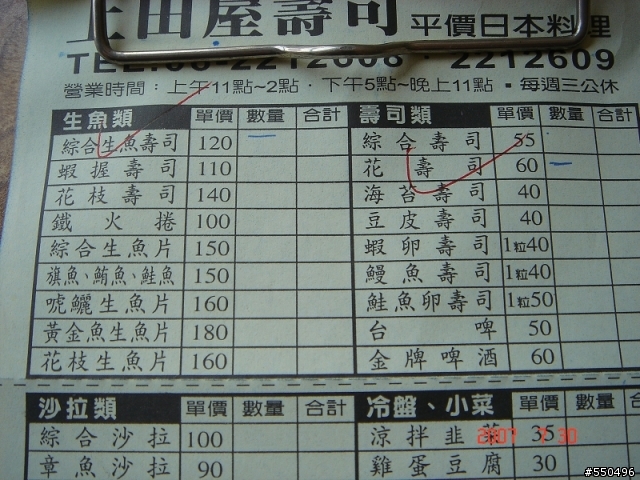 上田屋壽司 平價日本料理
TEL:06-2212608 · 2212609
營業時間：上午11點~2點 · 下午5點~晚上11點 ▪ 每週三公休
生魚類 單價 數量 合計 壽司類 單價 數量 合計
綜合生魚壽司 120 綜合壽司 55
蝦握壽司 110 花壽司 60
花枝壽司 140 海苔壽司 40
鐵火捲 100 豆皮壽司 40
綜合生魚片 150 蝦卵壽司 1粒40
旗魚、鮪魚、鮭魚 150 鰻魚壽司 1粒40
唬鱺生魚片 160 鮭魚卵壽司 1粒50
黃金魚生魚片 180 台啤 50
花枝生魚片 160 金牌啤酒 60
沙拉類 單價 數量 合計 冷盤、小菜 單價 數量 合計
綜合沙拉 100 涼拌韭菜 35
章魚沙拉 90 雞蛋豆腐 30
2007 7 30
#550496